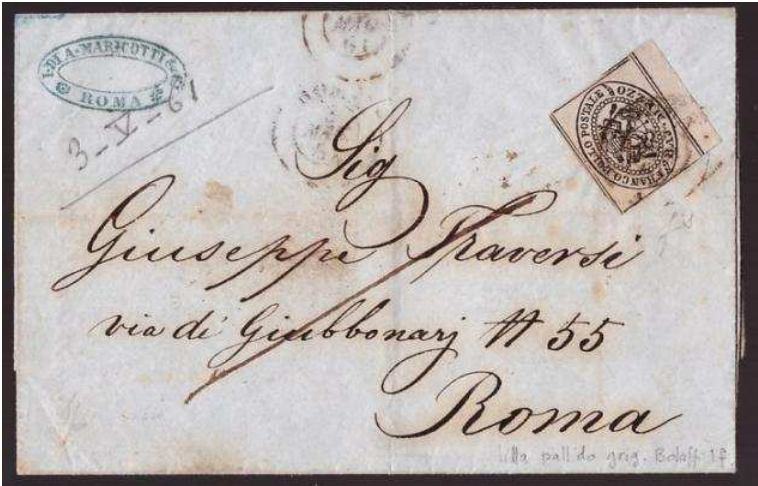 I·DI A·MARICOTTI & C.
ROMA
3-V-61
MAG
61
FRANCO BOLLO POSTALE
Sig
Giuseppe Traversi
via de' Giubbonarj # 55
Roma
lilla pallido grig. Bolaff. 1f